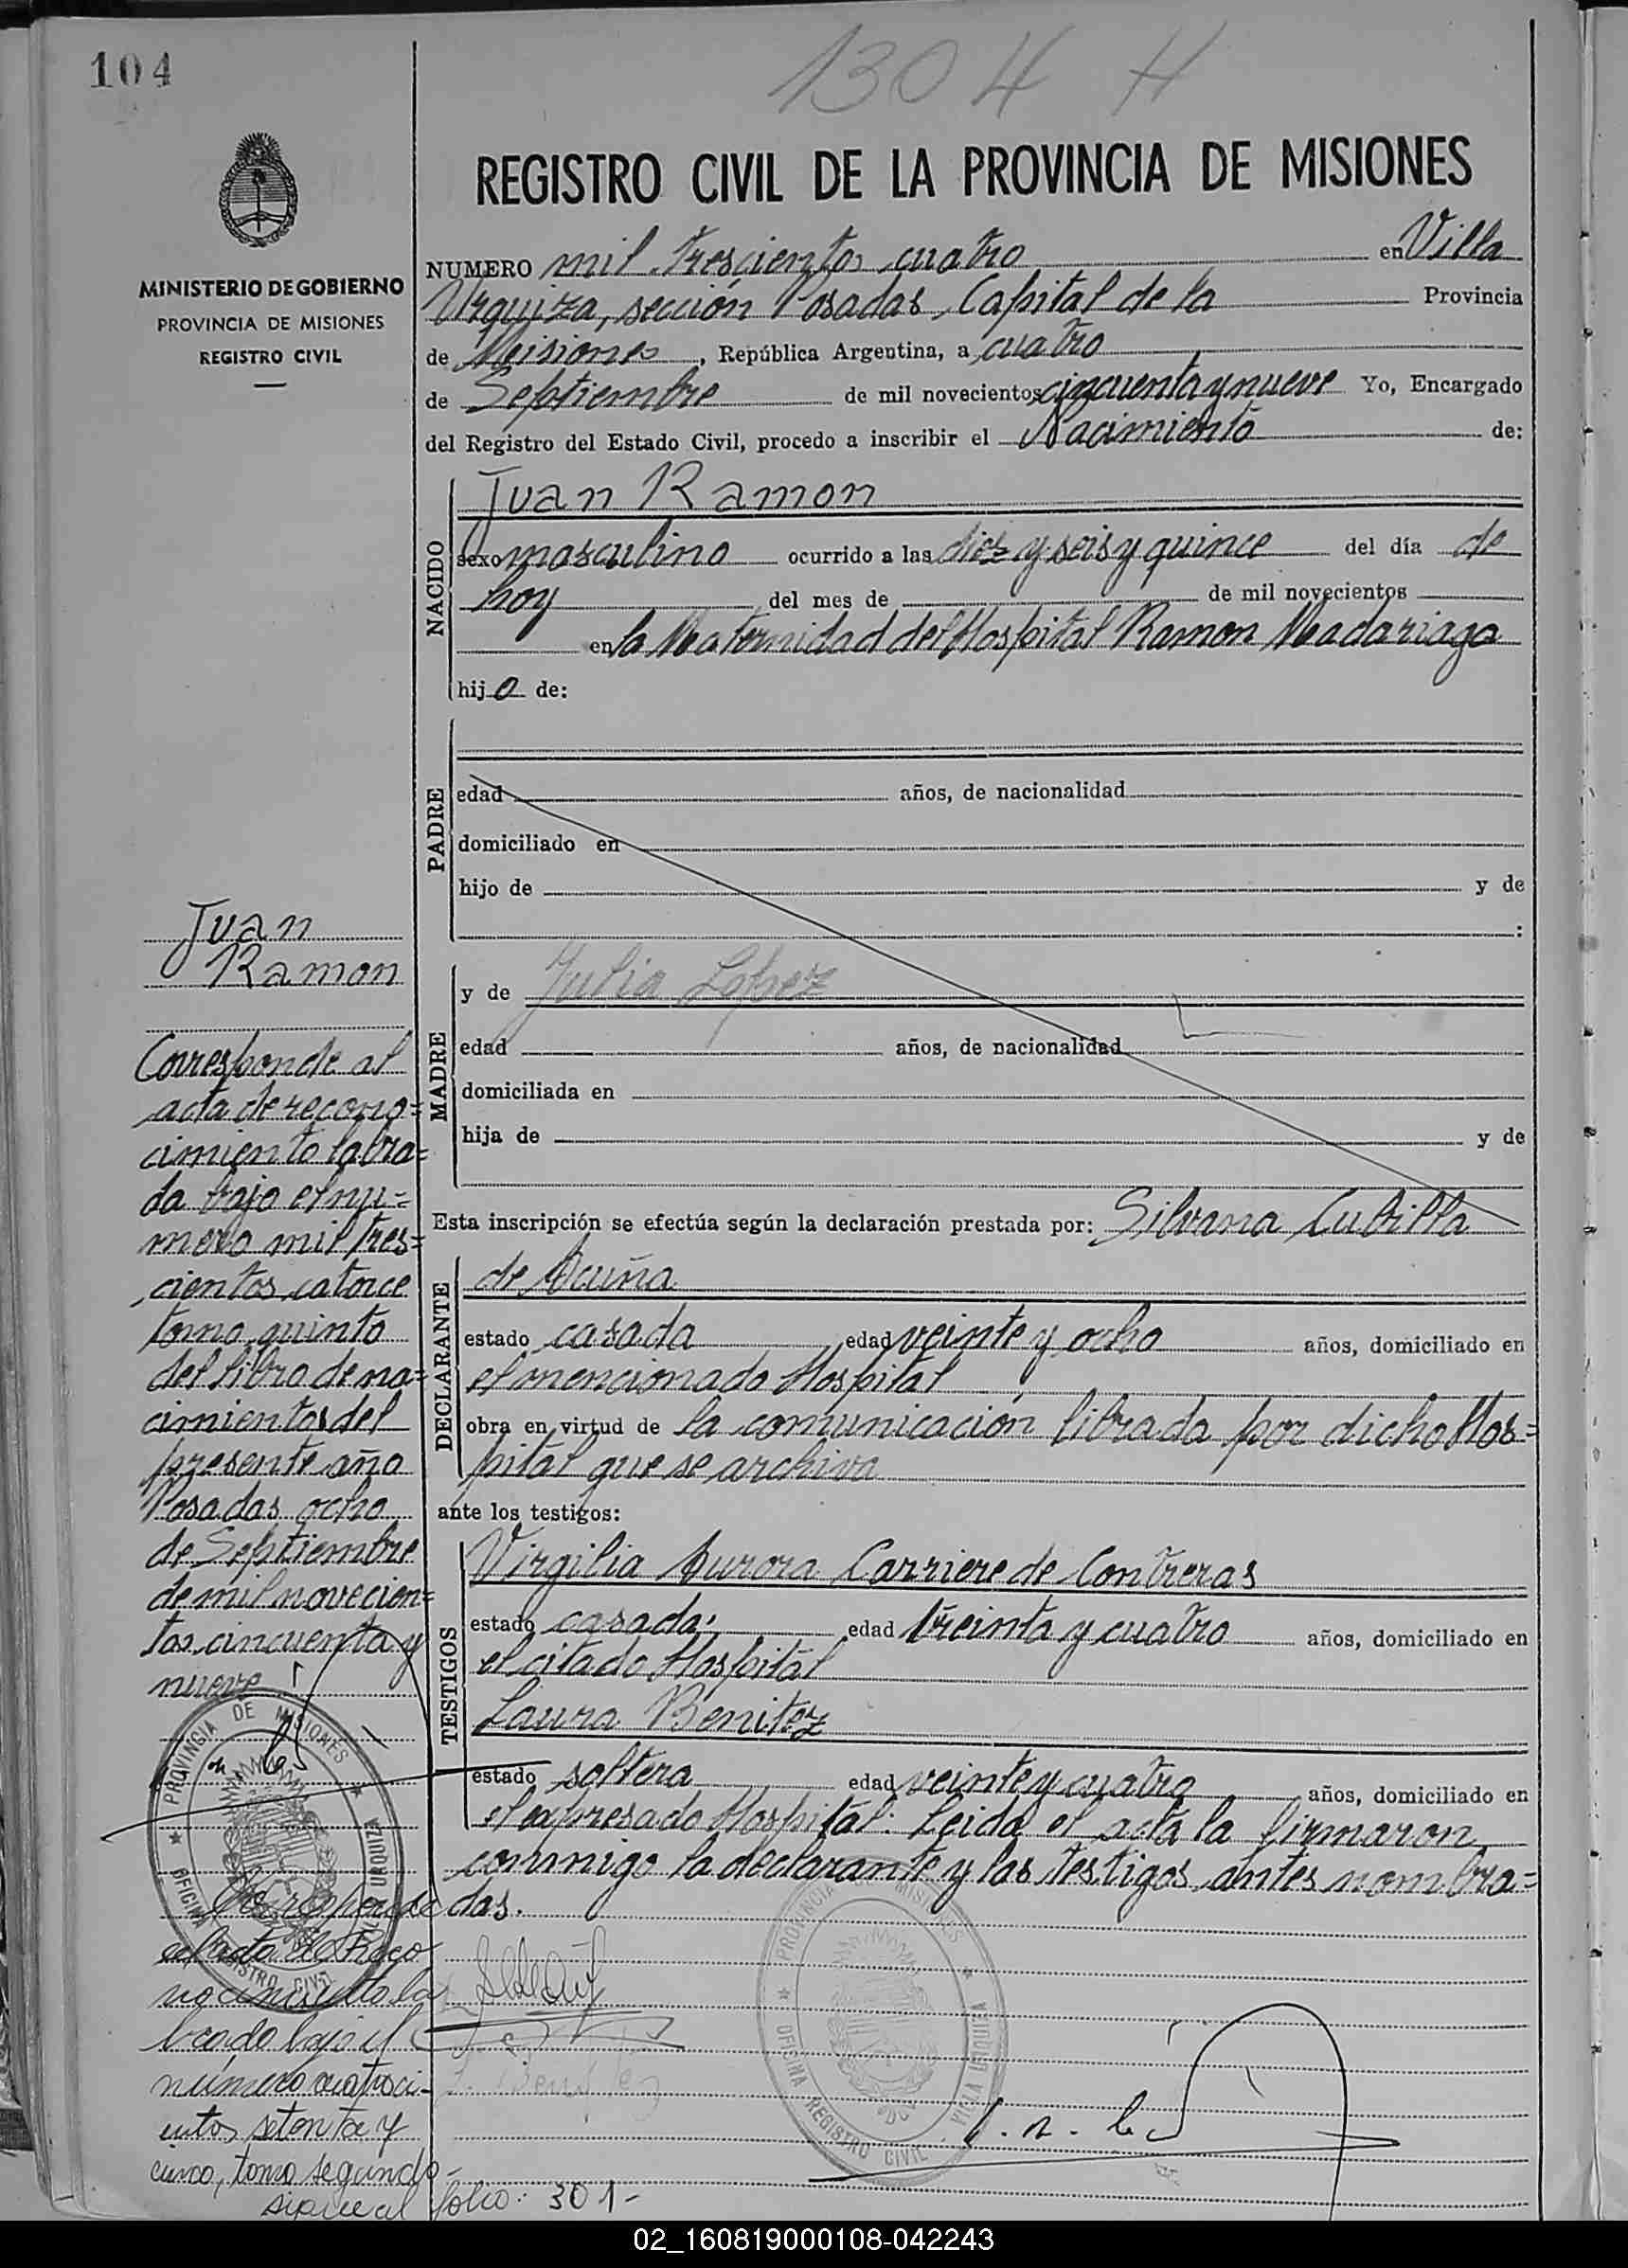 104
1304 H
REGISTRO CIVIL DE LA PROVINCIA DE MISIONES
MINISTERIO DE GOBIERNO
PROVINCIA DE MISIONES
REGISTRO CIVIL
NUMERO mil trescientos cuatro en Villa
Urquiza, sección Posadas, Capital de la Provincia
de Misiones, República Argentina, a cuatro
de Septiembre de mil novecientos cincuenta y nueve Yo, Encargado
del Registro del Estado Civil, procedo a inscribir el Nacimiento de:
NACIDO
Juan Ramon
sexo masculino ocurrido a las diez y seis y quince del día de
hoy del mes de de mil novecientos
en la Maternidad del Hospital Ramon Madariaga
hijo de:
PADRE
edad años, de nacionalidad
domiciliado en
hijo de y de
:
MADRE
y de Julia Lopez
edad años, de nacionalidad
domiciliada en
hija de y de
Esta inscripción se efectúa según la declaración prestada por: Silvana Cubilla
DECLARANTE
de Acuña
estado casada edad veinte y ocho años, domiciliado en
el mencionado Hospital
obra en virtud de la comunicación librada por dicho Hos=
pital que se archiva
ante los testigos:
TESTIGOS
Virgilia Aurora Carriere de Contreras
estado casada, edad treinta y cuatro años, domiciliado en
el citado Hospital
Laura Benitez
estado soltera edad veinte y cuatro años, domiciliado en
el expresado Hospital. Leida el acta la firmaron
conmigo la declarante y los testigos antes nombra=
dos.
Juan
Ramon
Corresponde al
acta de recono=
cimiento labra=
da bajo el nu=
mero mil tres=
cientos catorce
tomo quinto
del libro de na=
cimientos del
presente año
Posadas ocho
de Septiembre
de mil novecien=
tos cincuenta y
nueve
PROVINCIA DE MISIONES
OFICINA REGISTRO CIVIL
URQUIZA
Corresponde
el acta de Reco
nocimiento la
brado bajo el
número cuatroci-
entos setenta y
cinco, tomo segundo-
sigue al folio: 301-
L. Benitez
PROVINCIA DE MISIONES
OFICINA REGISTRO CIVIL
VILLA URQUIZA
02_160819000108-042243